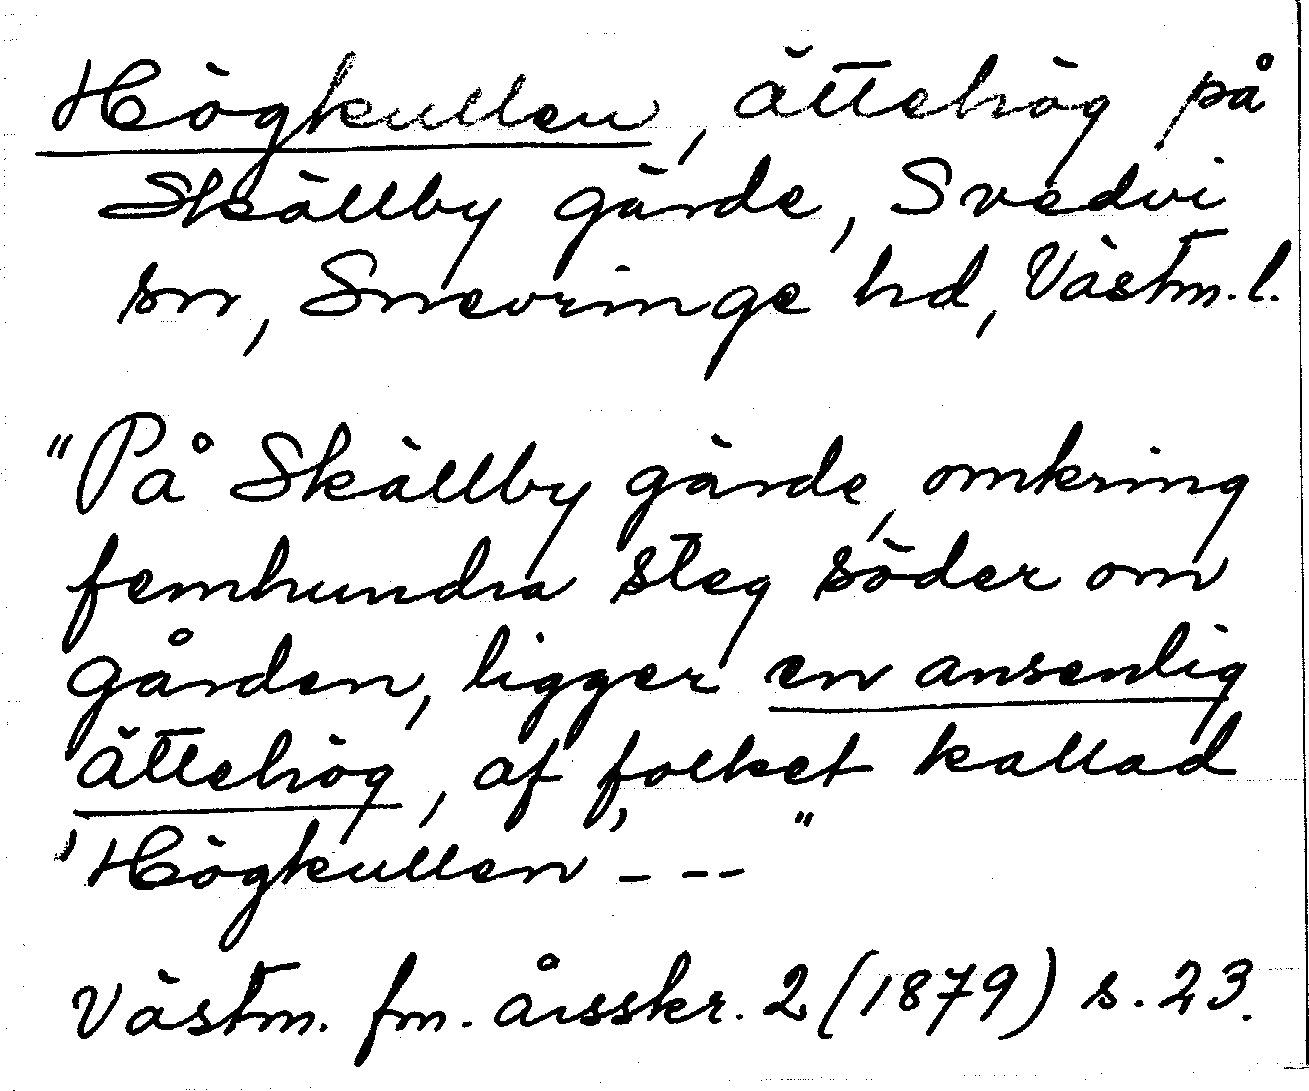 Högkullen, ättehög på
Skällby gärde, Svedvi
sn, Snevringe hd, Västm. l.
"På Skällby gärde, omkring
femhundra steg söder om
gården, ligger en ansenlig
ättehög, af folket kallad
'Högkullen' - - - "
Västm. fm. årsskr. 2 (1879) s. 23.